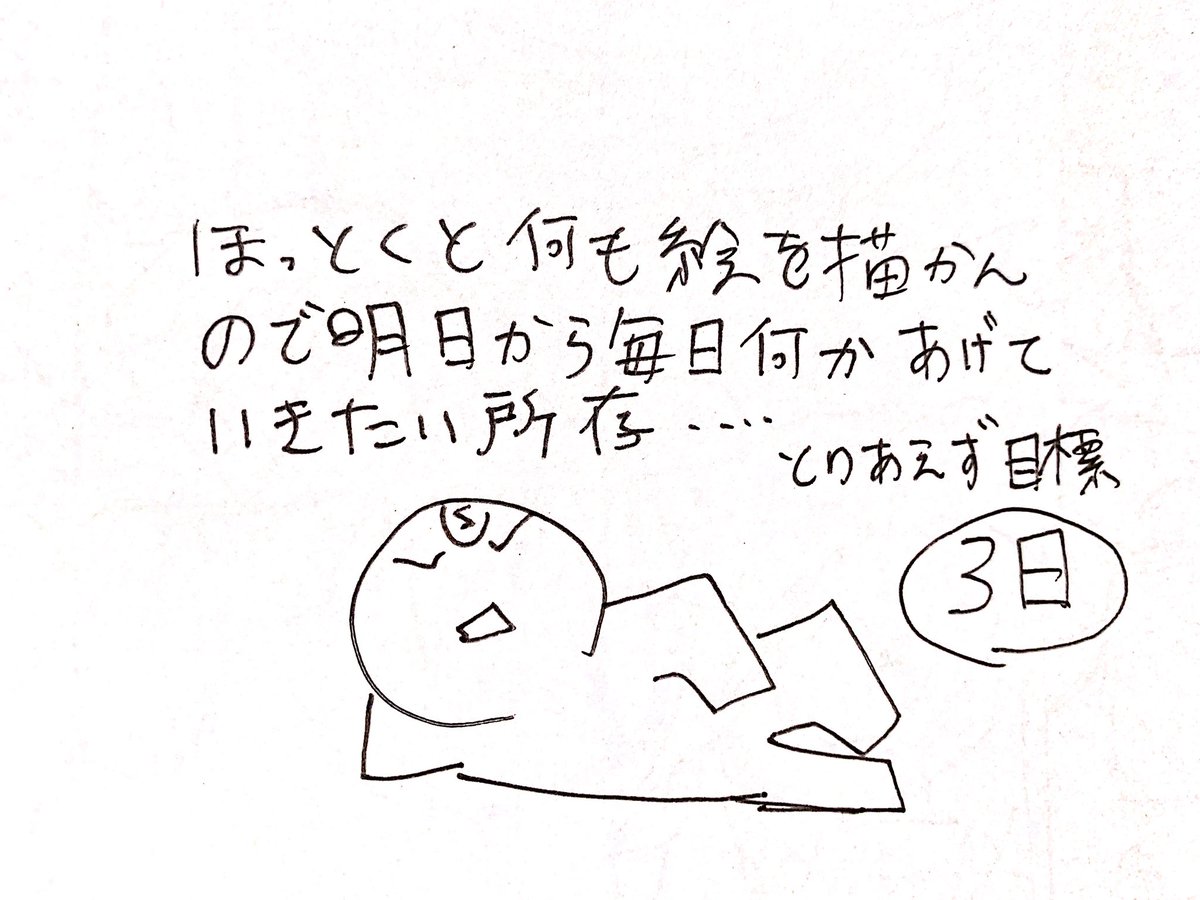 ほっとくと何も絵を描かん
ので明日から毎日何かあげて
いきたい所存‥‥
とりあえず目標
3日